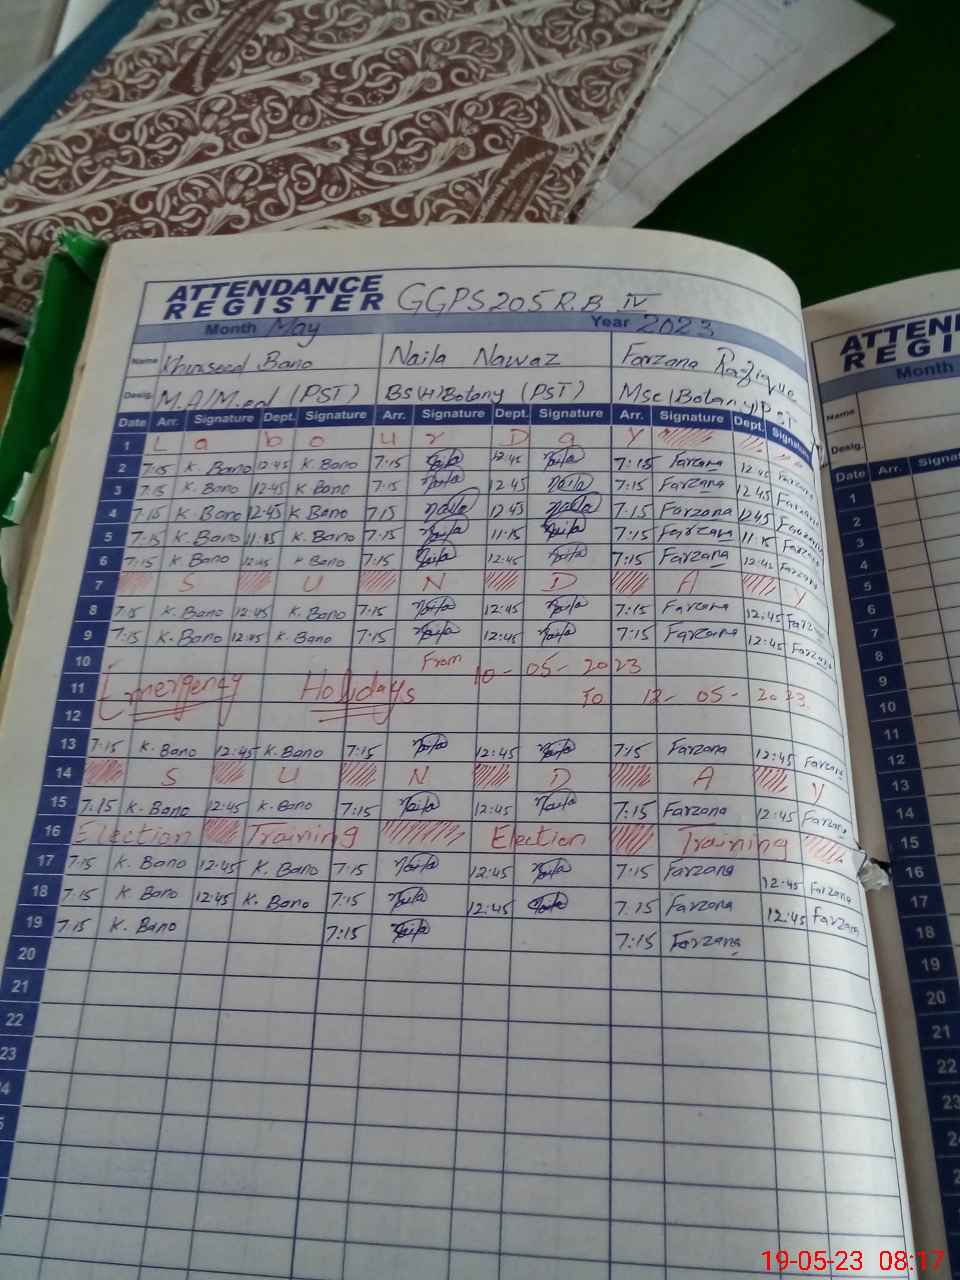 ATTENDANCE
REGISTER GGPS 205 R.B IV
Month May Year 2023
Name Khurseed Bano Naila Nawaz Farzana Razique
Desig. M.A/M.ed (PST) BS(H)Botany (PST) Msc/Botany/PST
Date Arr. Signature Dept. Signature Arr. Signature Dept. Signature Arr. Signature Dept. Signature
1 L a b o u r D a y
2 7:15 K. Bano 12:45 K. Bano 7:15 Naila 12:45 Naila 7:15 Farzana 12:45 Farzana
3 7:15 K. Bano 12:45 K. Bano 7:15 Naila 12:45 Naila 7:15 Farzana 12:45 Farzana
4 7:15 K. Bano 12:45 K. Bano 7:15 Naila 12:45 Naila 7:15 Farzana 12:45 Farzana
5 7:15 K. Bano 11:15 K. Bano 7:15 Naila 11:15 Naila 7:15 Farzana 11:15 Farzana
6 7:15 K. Bano 12:45 K Bano 7:15 Naila 12:45 Naila 7:15 Farzana 12:45 Farzana
7 S U N D A Y
8 7:15 K. Bano 12:45 K. Bano 7:15 Naila 12:45 Naila 7:15 Farzana 12:45 Farzana
9 7:15 K. Bano 12:45 K. Bano 7:15 Naila 12:45 Naila 7:15 Farzana 12:45 Farzana
10 From 10-05-2023
11 Emergency Holidays To 12-05-2023.
12
13 7:15 K. Bano 12:45 K. Bano 7:15 Naila 12:45 Naila 7:15 Farzana 12:45 Farzana
14 S U N D A Y
15 7:15 K. Bano 12:45 K. Bano 7:15 Naila 12:45 Naila 7:15 Farzana 12:45 Farzana
16 Election Training Election Training
17 7:15 K. Bano 12:45 K. Bano 7:15 Naila 12:45 Naila 7:15 Farzana 12:45 Farzana
18 7:15 K. Bano 12:45 K. Bano 7:15 Naila 12:45 Naila 7:15 Farzana 12:45 Farzana
19 7:15 K. Bano 7:15 Naila 7:15 Farzana
20
21
22
23
ATTEN
REGI
Month
Name
Desig.
Date Arr. Signat
1
2
3
4
5
6
7
8
9
10
11
12
13
14
15
16
17
18
19
20
21
22
23
19-05-23 08:17